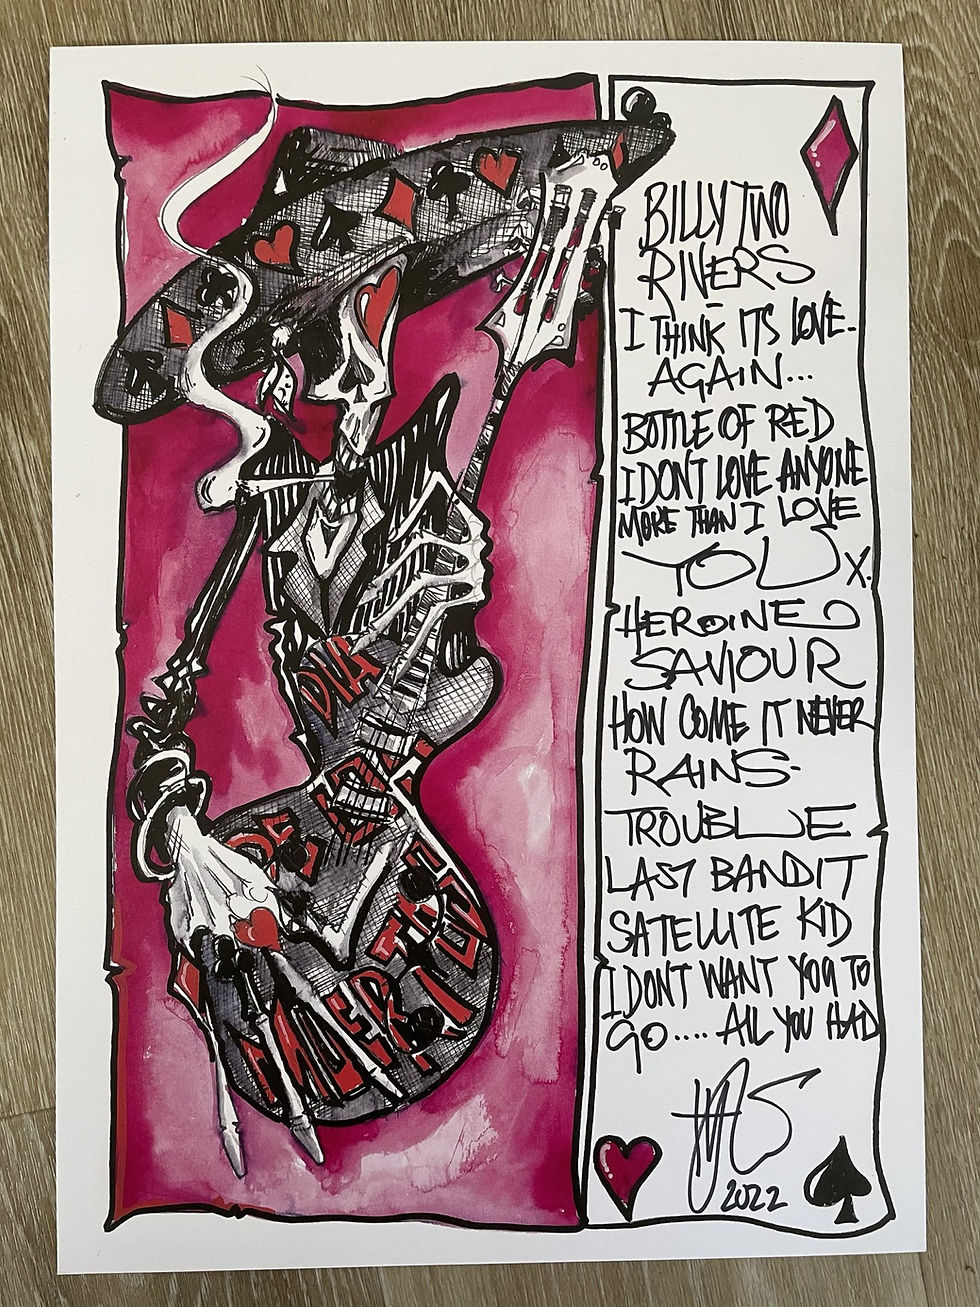 BILLY TWO
RIVERS
I THINK ITS LOVE-
AGAIN...
BOTTLE OF RED
I DONT LOVE ANYONE
MORE THAN I LOVE
YOU X.
HEROINE
SAVIOUR
HOW COME IT NEVER
RAINS-
TROUBLE
LAST BANDIT
SATELLITE KID
I DONT WANT YOU TO
GO.... ALL YOU HAD
2022
DE